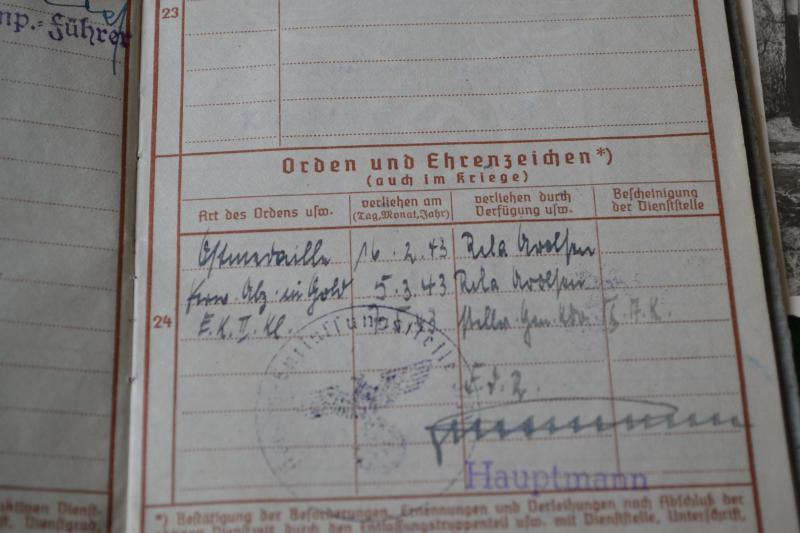 mp.-Führer
23
Orden und Ehrenzeichen*)
(auch im Kriege)
Art des Ordens usw.
verliehen am (Tag, Monat, Jahr)
verliehen durch Verfügung usw.
Bescheinigung der Dienststelle
Ostmedaille 16.2.43 Rela Arolsen
Verw. Abz. in Gold 5.3.43 Rela Arolsen
24
E.K. II. Kl. 43 stellv. Gen. Kdo. A.K.
Entlassungsstelle
F.d.R.
Hauptmann
*) Bestätigung der Beförderungen, Ernennungen und Verleihungen nach Abschluß der
aktiven Dienstzeit durch den Entlassungstruppenteil usw. mit Dienststelle, Unterschrift,
aktiven Dienst-
Dienstgrad,